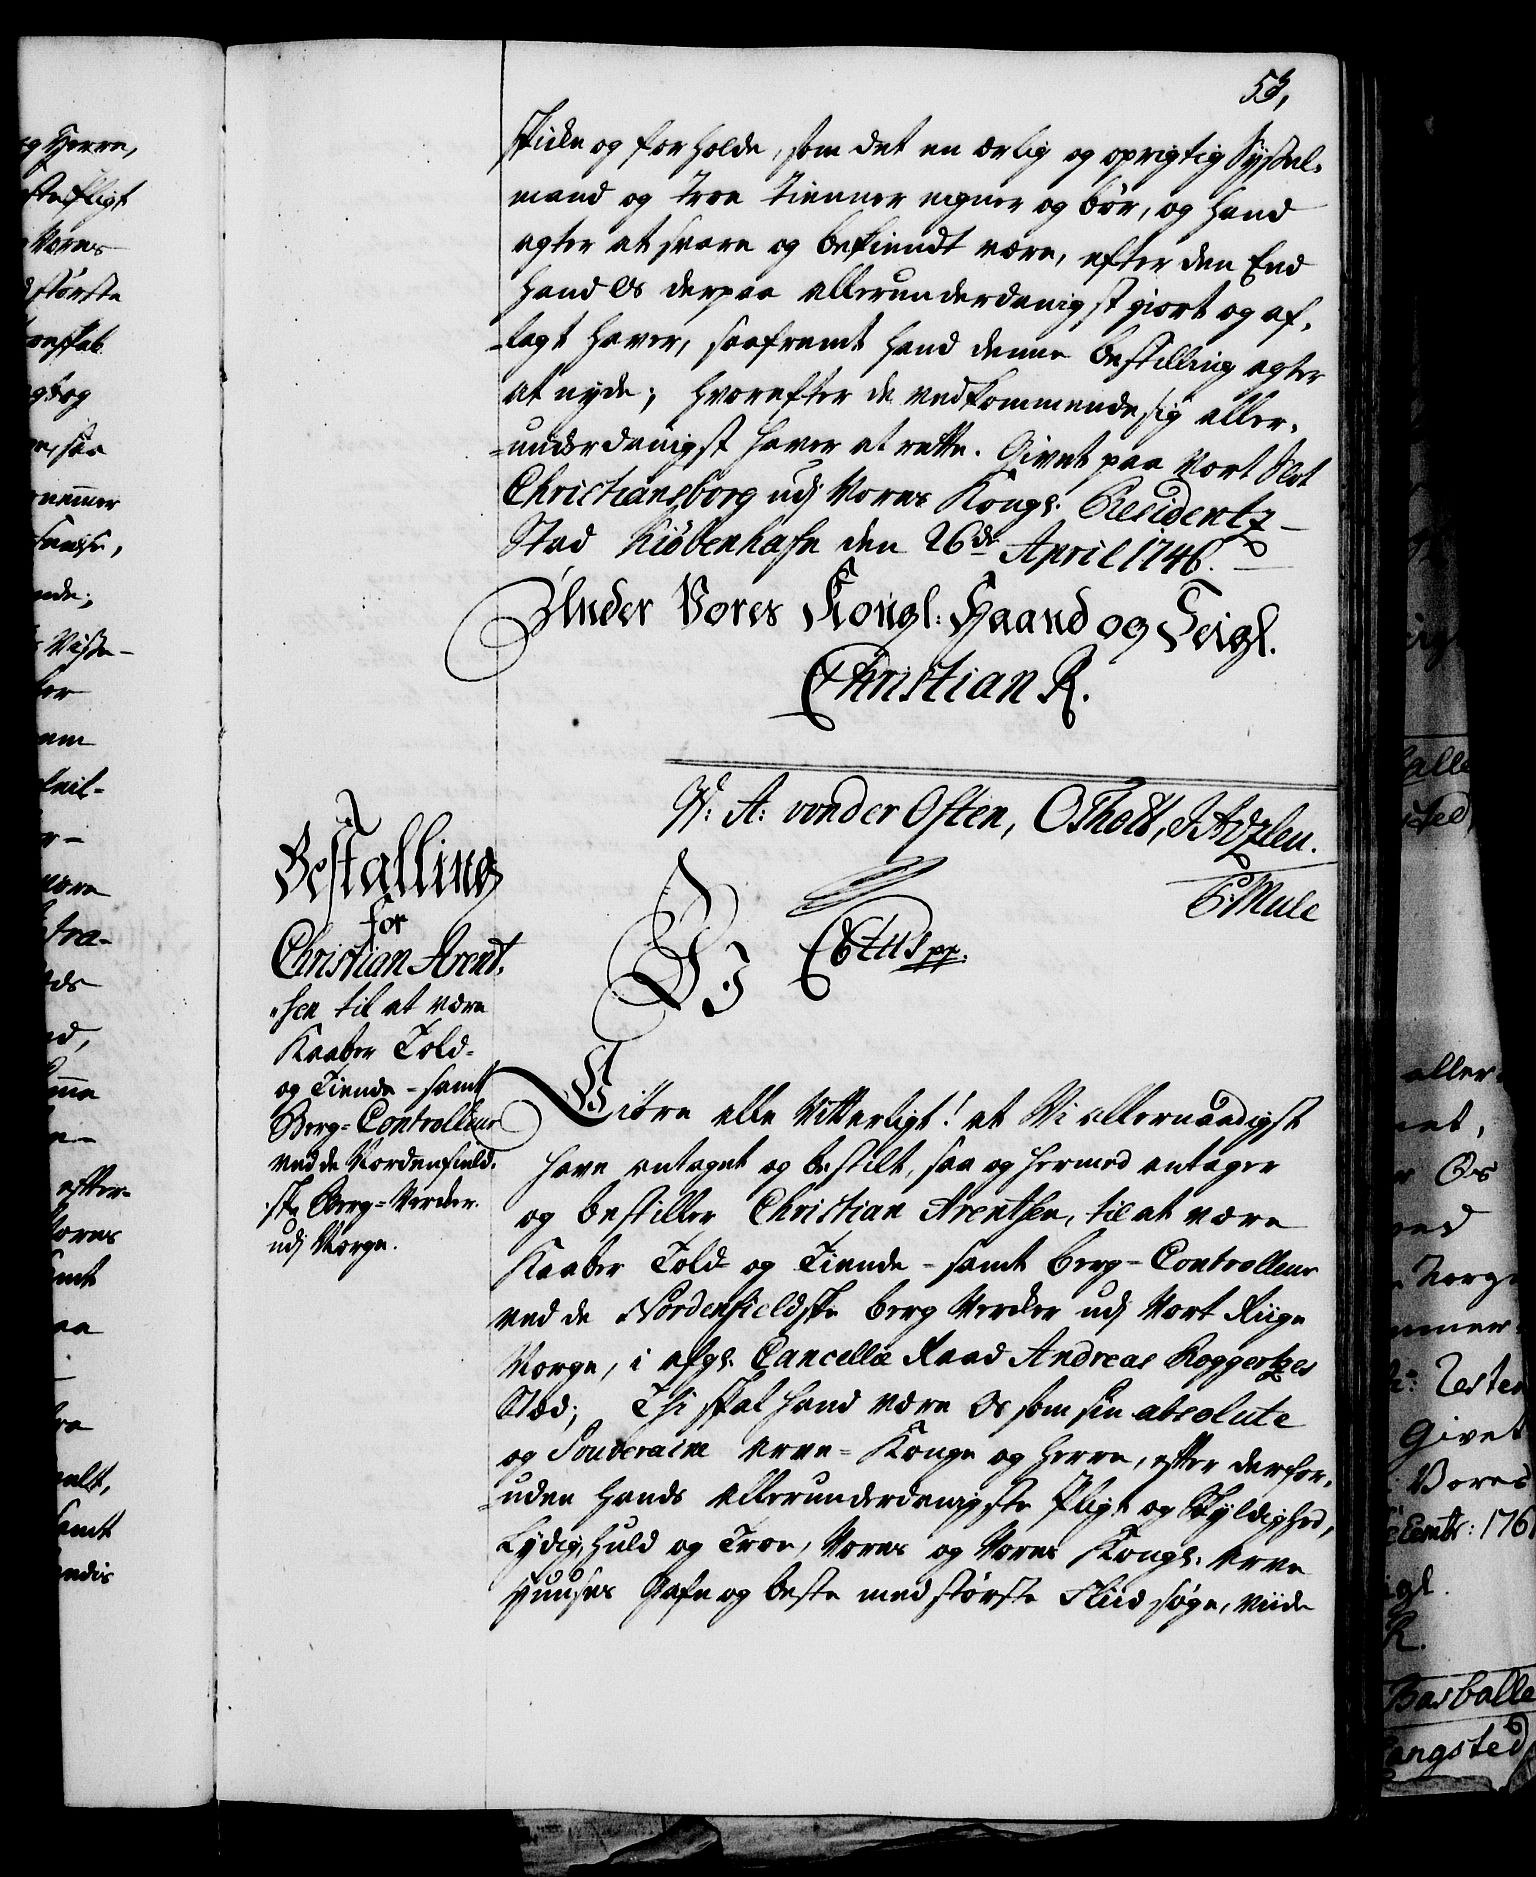 53,
skicke og forholde, som det en ærlig og oprigtig Syssel-
mand og Troe Tienner egner og bør, og hand
agter at svare og bekiendt være, efter den Eed
hand Os derpaa allerunderdanigst giort og af-
-lagt haver, saafremt hand denne bestilling agter
at nyde; hvorefter de vedkommende sig aller-
-underdanigst haver at rette. Givet paa Vort Slot
Christiansborg udj Vores Kongl. Residentz
Stad Kiöbenhafn den 26de April 1746.
Under Vores Kongl: Haand og Seigl.
Christian R.
W: A: von der Osten, OThott,
C: Mule
Bestalling
for
Christian Arent-
-sen til at være
Kaaber Told-
og Tiende- samt
Berg-Controlleur
ved de Nordenfield-
-ske Berg-Verker
udj Norge.
Vj C 6tus pp.
Giøre alle Vitterligt! at Vi allernaadigst
have antaget og bestilt, saa og hermed antager
og bestiller Christian Arentsen, til at være
Kaaber Told- og Tiende- samt berg-Controlleur
ved de Nordenfieldske berg Verker udj Vort Riige
Norge, i afgl. Cancellie Raad Andreas Roggertzes
Stæd; Thi skal hand være Os som sin absolute
og Souveraine Arve-Konge og Herre, efter derfor-
-uden hands allerunderdanigste Pligt og Skyldighed,
Lydig, Huld og Troe, Vores og Vores Kongl. Arve
Huuses Gafn og beste med største Fliid søge, viide